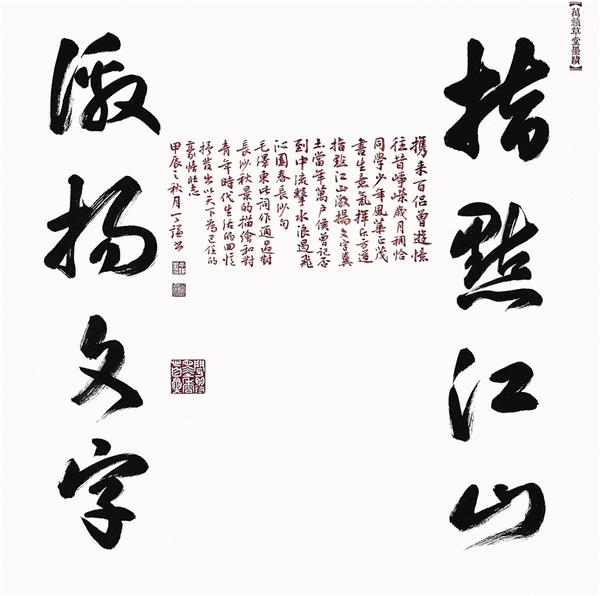 【萬籟草堂墨蹟】
指點江山
携来百侣曾遊憶
往昔崢嶸歲月稠恰
同學少年風華正茂
書生意氣揮斥方遒
指點江山激揚文字糞
土當年萬户侯曾記否
到中流擊水浪遏飛
沁園春長沙句
毛澤東此詞作通過對
長沙秋景的描繪和對
青年時代生活的回憶
抒發出以天下為己任的
豪情壯志
甲辰之秋月丁謙
激揚文字